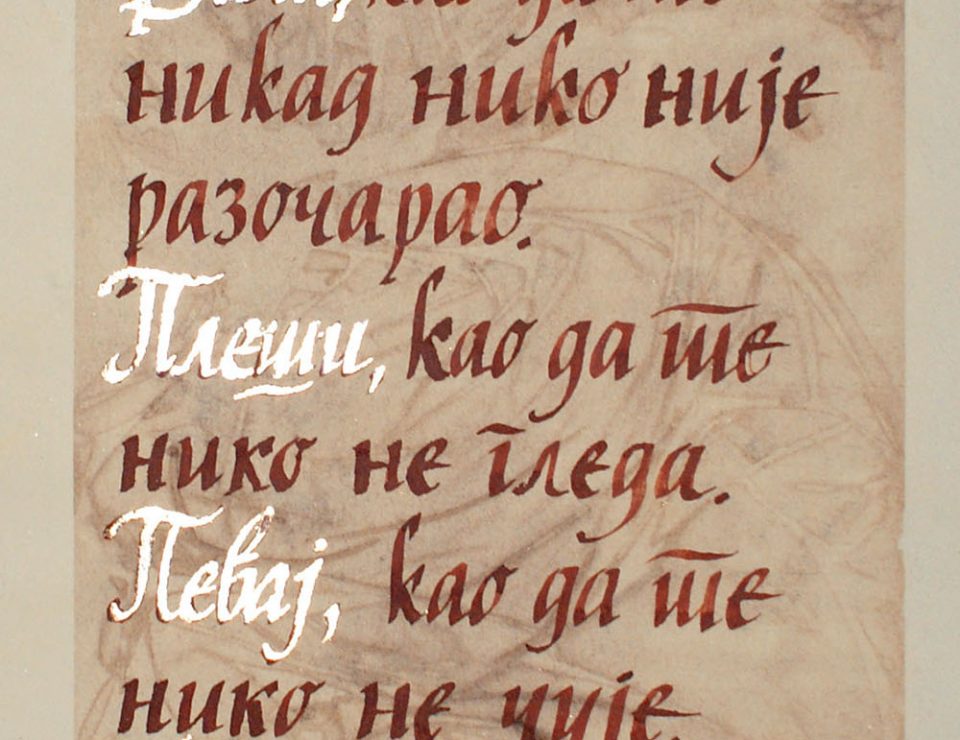 као да те
никад нико није
разочарао.
Плеши, као да те
нико не гледа.
Певај, као да те
нико не чује.